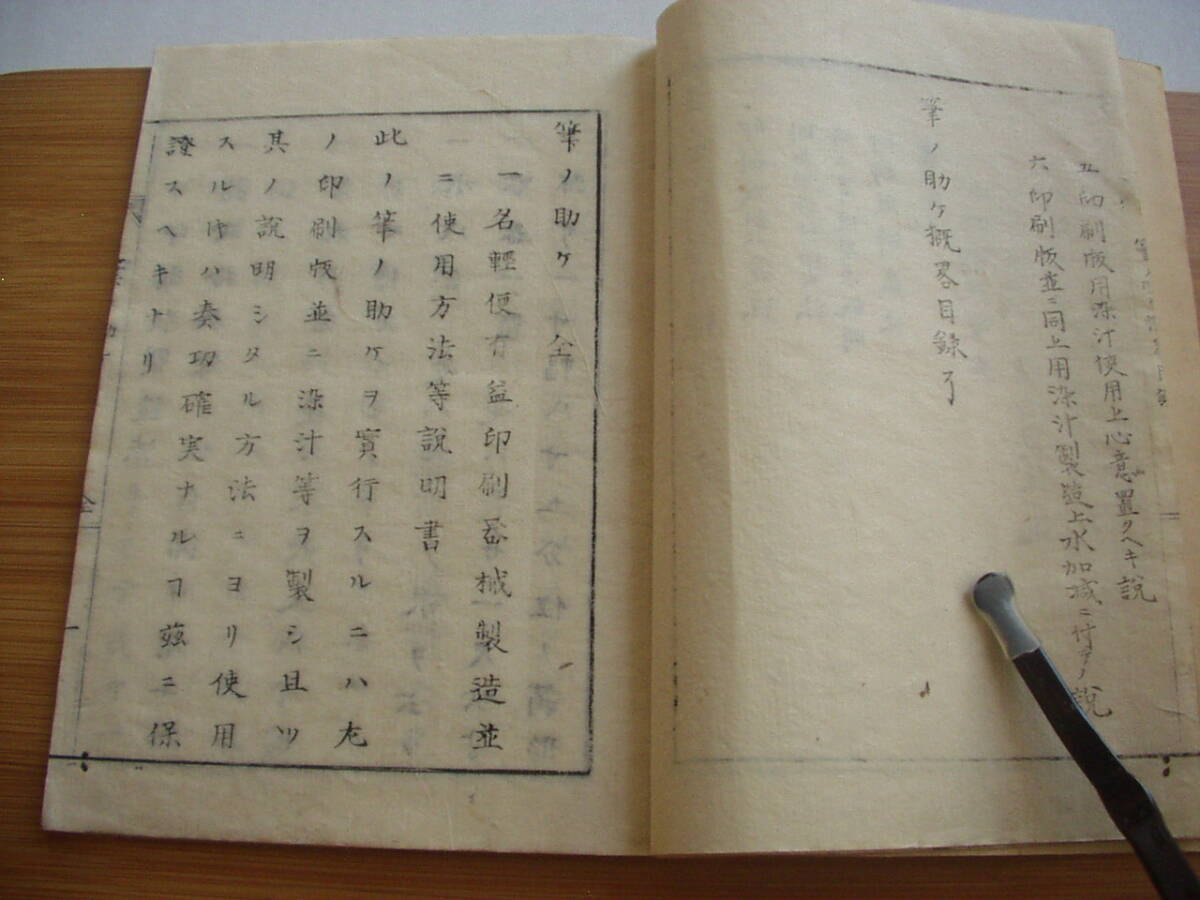 五 印刷版用染汁使用上心意置クヘキ説
六 印刷版並ニ同上用染汁製造上水加減ニ付テノ説
筆ノ助ケ概畧目録了
筆ノ助ケ 全
一名輕便有益印刷器械製造並
ニ使用方法等説明書
此ノ筆ノ助ケヲ實行スルニハ左
ノ印刷版並ニ染汁等ヲ製シ且ツ
其ノ説明シタル方法ニヨリ使用
スル时ハ奏功確実ナルヿ茲ニ保
證スヘキナリ
全
一